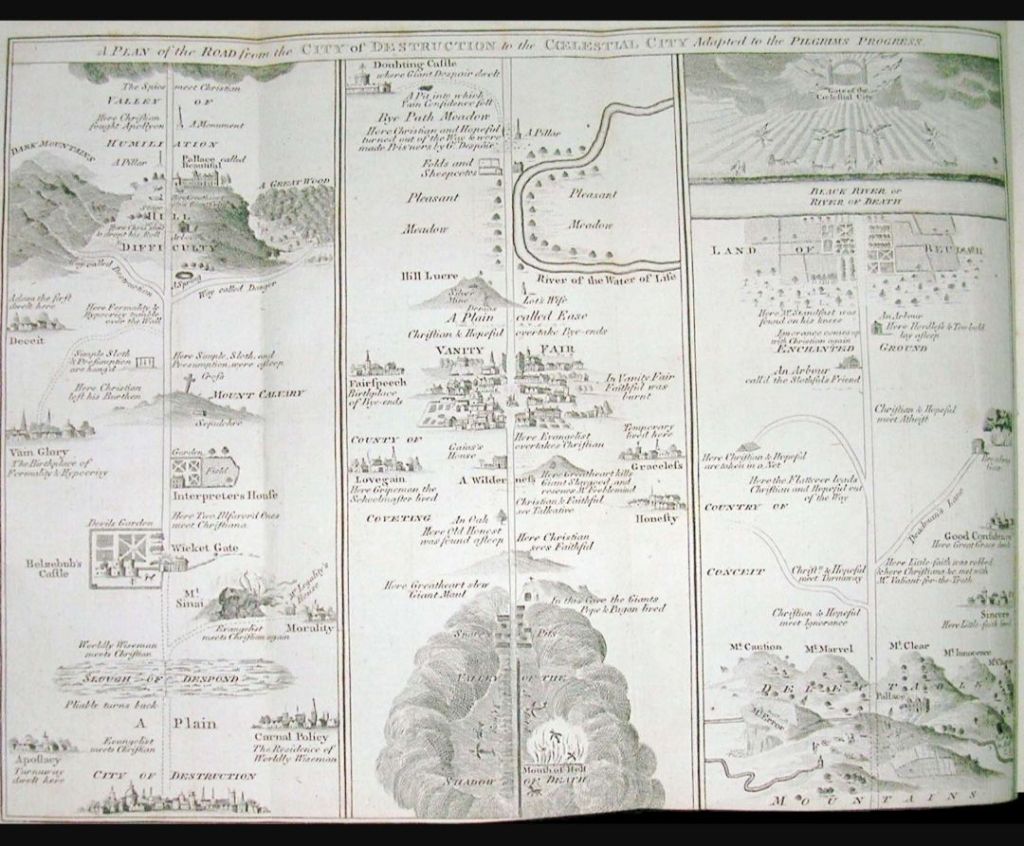 A PLAN of the ROAD from the CITY of DESTRUCTION to the CŒLESTIAL CITY Adapted to the PILGRIMS PROGRESS
The Spies meet Christian
VALLEY OF
Here Christian
fought Apollyon
A Monument
HUMILIATION
DARK MOUNTAINS
A Pillar
Pallace called
Beautiful
A GREAT WOOD
HILL
DIFFICULTY
A Spring
Way called Danger
Here Formality &
Hypocrisy tumble
over the Wall
Deceit
Simple Sloth
& Presumption
are hang'd
Here Simple, Sloth, and
Presumption, were asleep
Cross
Here Christian
left his Burthen
MOUNT CALVARY
Sepulchre
Vain Glory
The Birthplace of
Formality & Hypocrisy
Garden
Field
Interpreter's House
Devils Garden
Here Two Ilfavor'd Ones
meet Christiana
Wicket Gate
Belzebub's
Castle
Mt
Sinai
Mr Legality's
House
Morality
Evangelist
meets Christian again
Worldly Wiseman
meets Christian
SLOUGH OF DESPOND
Pliably turns back
A Plain
Carnal Policy
The Residence of
Worldly Wiseman
Evangelist
meets Christian
Apostacy
Turnaway
dwelt here
CITY OF DESTRUCTION
Doubting Castle
where Giant Despair dwelt
A Pit into which
Vain Confidence fell
Bye Path Meadow
Here Christian and Hopeful
turned out of the Way & were
made Pris'ners by G. Despair
A Pillar
Folds and
Sheepcotes
Pleasant
Meadow
Pleasant
Meadow
Hill Lucre
River of the Water of Life
Silver
Mine
Demas
Lot's Wife
A Plain called Ease
Christian & Hopeful overtake Bye-ends
VANITY FAIR
Fairspeech
Birthplace
of Bye-ends
In Vanity Fair
Faithful was
burnt
COUNTY OF
Gaius's
House
Here Evangelist
overtakes Christian
Temporary
lived here
Graceless
Lovegain
Here Gripeman the
Schoolmaster lived
A Wilderness
Here Greatheart kills
Giant Slaygood and
rescues Mr Feeblemind
Christian & Faithful
see Talkative
Honesty
COVETING
An Oak
Here Old Honest
was found asleep
Here Christian
sees Faithful
Here Greatheart slew
Giant Maul
In this Cave the Giants
Pope & Pagan lived
Snares Pits
VALLEY OF THE
Mouth of Hell
SHADOW OF DEATH
Gate of the
Cœlestial City
BLACK RIVER or
RIVER OF DEATH
LAND OF BEULAH
Here Mr Standfast was
found on his knees
An Arbour
Here Heedless & Too bold
lay asleep
Ignorance comes up
with Christian again
ENCHANTED GROUND
An Arbour
call'd the Slothful's Friend
Christian & Hopeful
meet Atheist
Here Christian & Hopeful
are taken in a Net
Here the Flatterer leads
Christian and Hopeful out
of the Way
COUNTRY OF
Deadman's Lane
Good Confidence
Here Great Grace lived
Here Little-faith was robbed
& here Christiana &c. met with
Mr Valiant-for-the-Truth
CONCEIT
Christn & Hopeful
meet Turnaway
Sincere
Here Little-faith lived
Christian & Hopeful
meet Ignorance
Mt Caution
Mt Marvel
Mt Clear
Mt Innocence
DELECTABLE
Pallace
Mt Error
MOUNTAINS